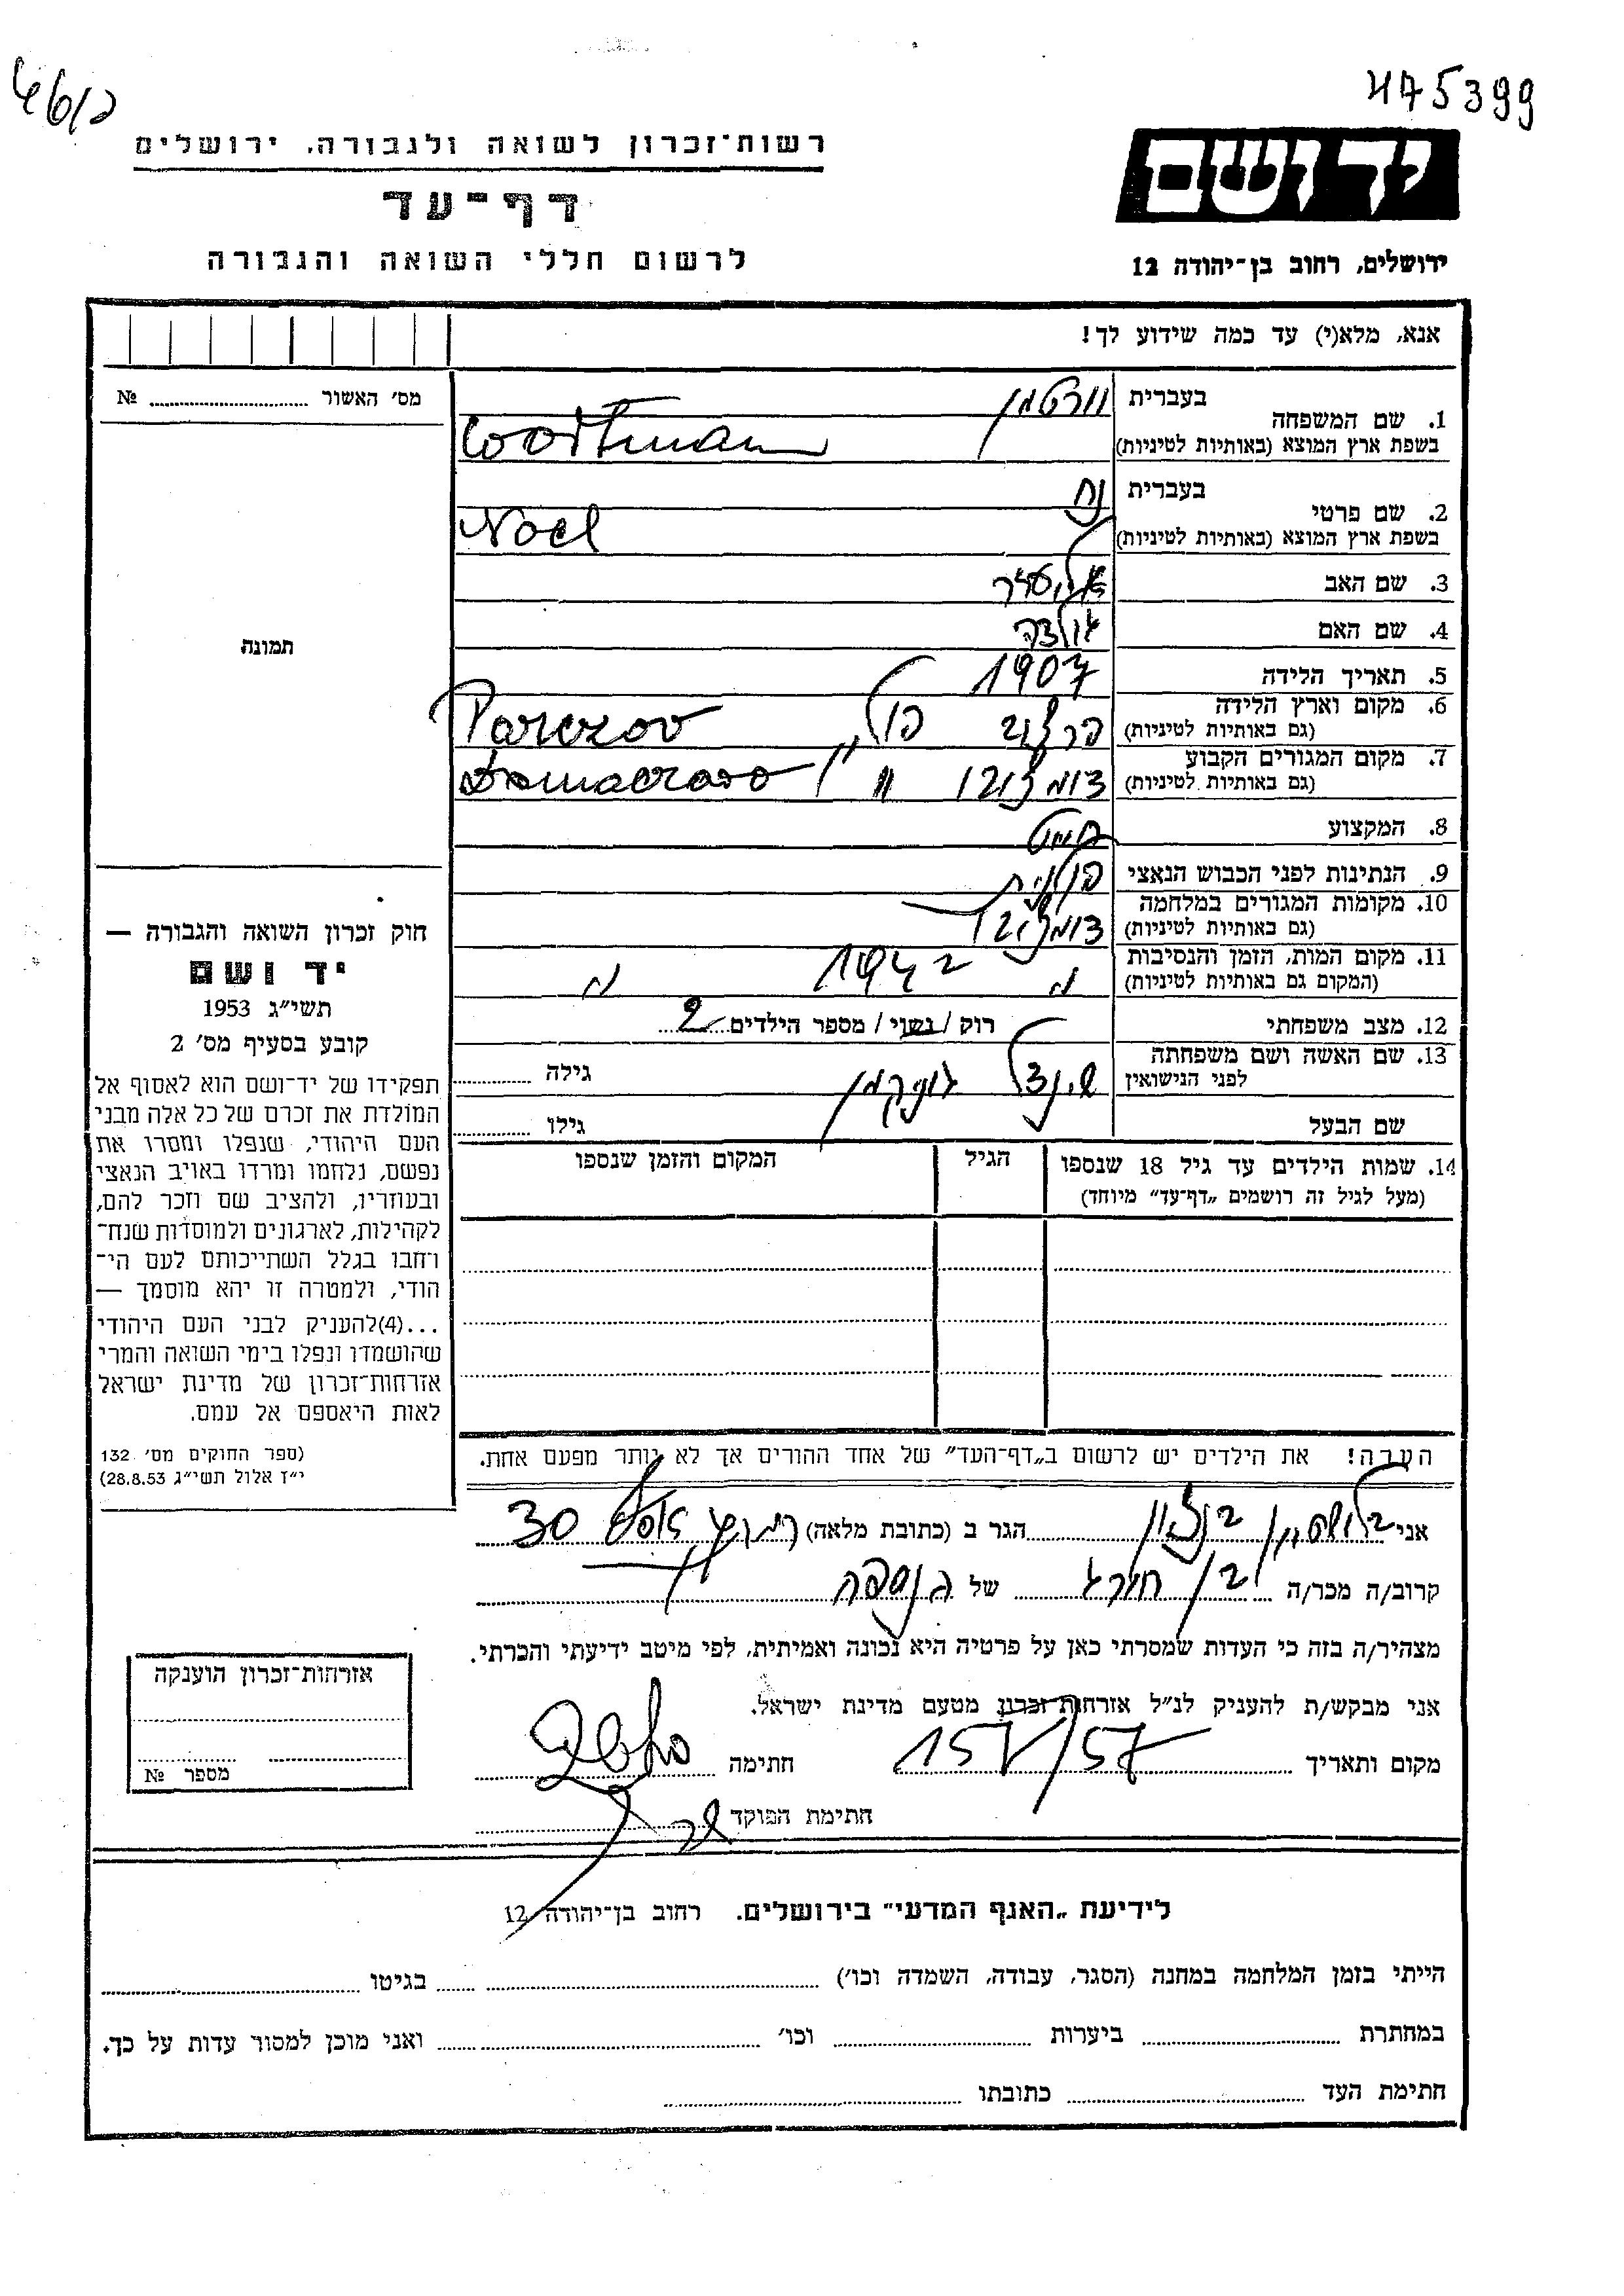 46/2
475399
רשות־זכרון לשואה ולגבורה, ירושלים
דף־עד
לרשום חללי השואה והגבורה
יד ושם
ירושלים, רחוב בן־יהודה 12
אנא, מלא(י) עד כמה שידוע לך!
מס׳ האשור № ........
תמונה
1. שם המשפחה
בעברית וורטמן
בשפת ארץ המוצא (באותיות לטיניות) Woortman
2. שם פרטי
בעברית נח
בשפת ארץ המוצא (באותיות לטיניות) Noel
3. שם האב
4. שם האם
5. תאריך הלידה 1907
6. מקום וארץ הלידה
(גם באותיות לטיניות) פרצוב פול Parczov
7. מקום המגורים הקבוע
(גם באותיות לטיניות) "
8. המקצוע
9. הנתינות לפני הכבוש הנאצי פולנית
10. מקומות המגורים במלחמה
(גם באותיות לטיניות)
11. מקום המות, הזמן והנסיבות
(המקום גם באותיות לטיניות) 1942
12. מצב משפחתי רוק / נשוי / מספר הילדים 2
13. שם האשה ושם משפחתה
לפני הנישואין שינדל גילה
שם הבעל גילו
14. שמות הילדים עד גיל 18 שנספו
(מעל לגיל זה רושמים „דף־עד״ מיוחד)
הגיל
המקום והזמן שנספו
הערה! את הילדים יש לרשום ב„דף־העד״ של אחד ההורים אך לא יותר מפעם אחת.
חוק זכרון השואה והגבורה —
יד ושם
תשי״ג 1953
קובע בסעיף מס׳ 2
תפקידו של יד־ושם הוא לאסוף אל
המולדת את זכרם של כל אלה מבני
העם היהודי, שנפלו ומסרו את
נפשם, נלחמו ומרדו באויב הנאצי
ובעוזריו, ולהציב שם וזכר להם,
לקהילות, לארגונים ולמוסדות שנח־
רחבו בגלל השתייכותם לעם הי־
הודי, ולמטרה זו יהא מוסמך —
...(4) להעניק לבני העם היהודי
שהושמדו ונפלו בימי השואה והמרי
אזרחות־זכרון של מדינת ישראל
לאות היאספם אל עמם.
(ספר החוקים מס׳ 132
י״ז אלול תשי״ג 28.8.53)
אני בן ציון הגר ב (כתובת מלאה) 30
קרוב/ה מכר/ה בן חורג של הנספה
מצהיר/ה בזה כי העדות שמסרתי כאן על פרטיה היא נכונה ואמיתית, לפי מיטב ידיעתי והכרתי.
אני מבקש/ת להעניק לנ״ל אזרחות־זכרון מטעם מדינת ישראל.
מקום ותאריך 15V/57 חתימה
חתימת הפוקד
אזרחות־זכרון הוענקה
מספר №
לידיעת „האגף המדעי״ בירושלים. רחוב בן־יהודה 12
הייתי בזמן המלחמה במחנה (הסגר, עבודה, השמדה וכו׳) בגיטו
במחתרת ביערות וכו׳ ואני מוכן למסור עדות על כך.
חתימת העד כתובתו